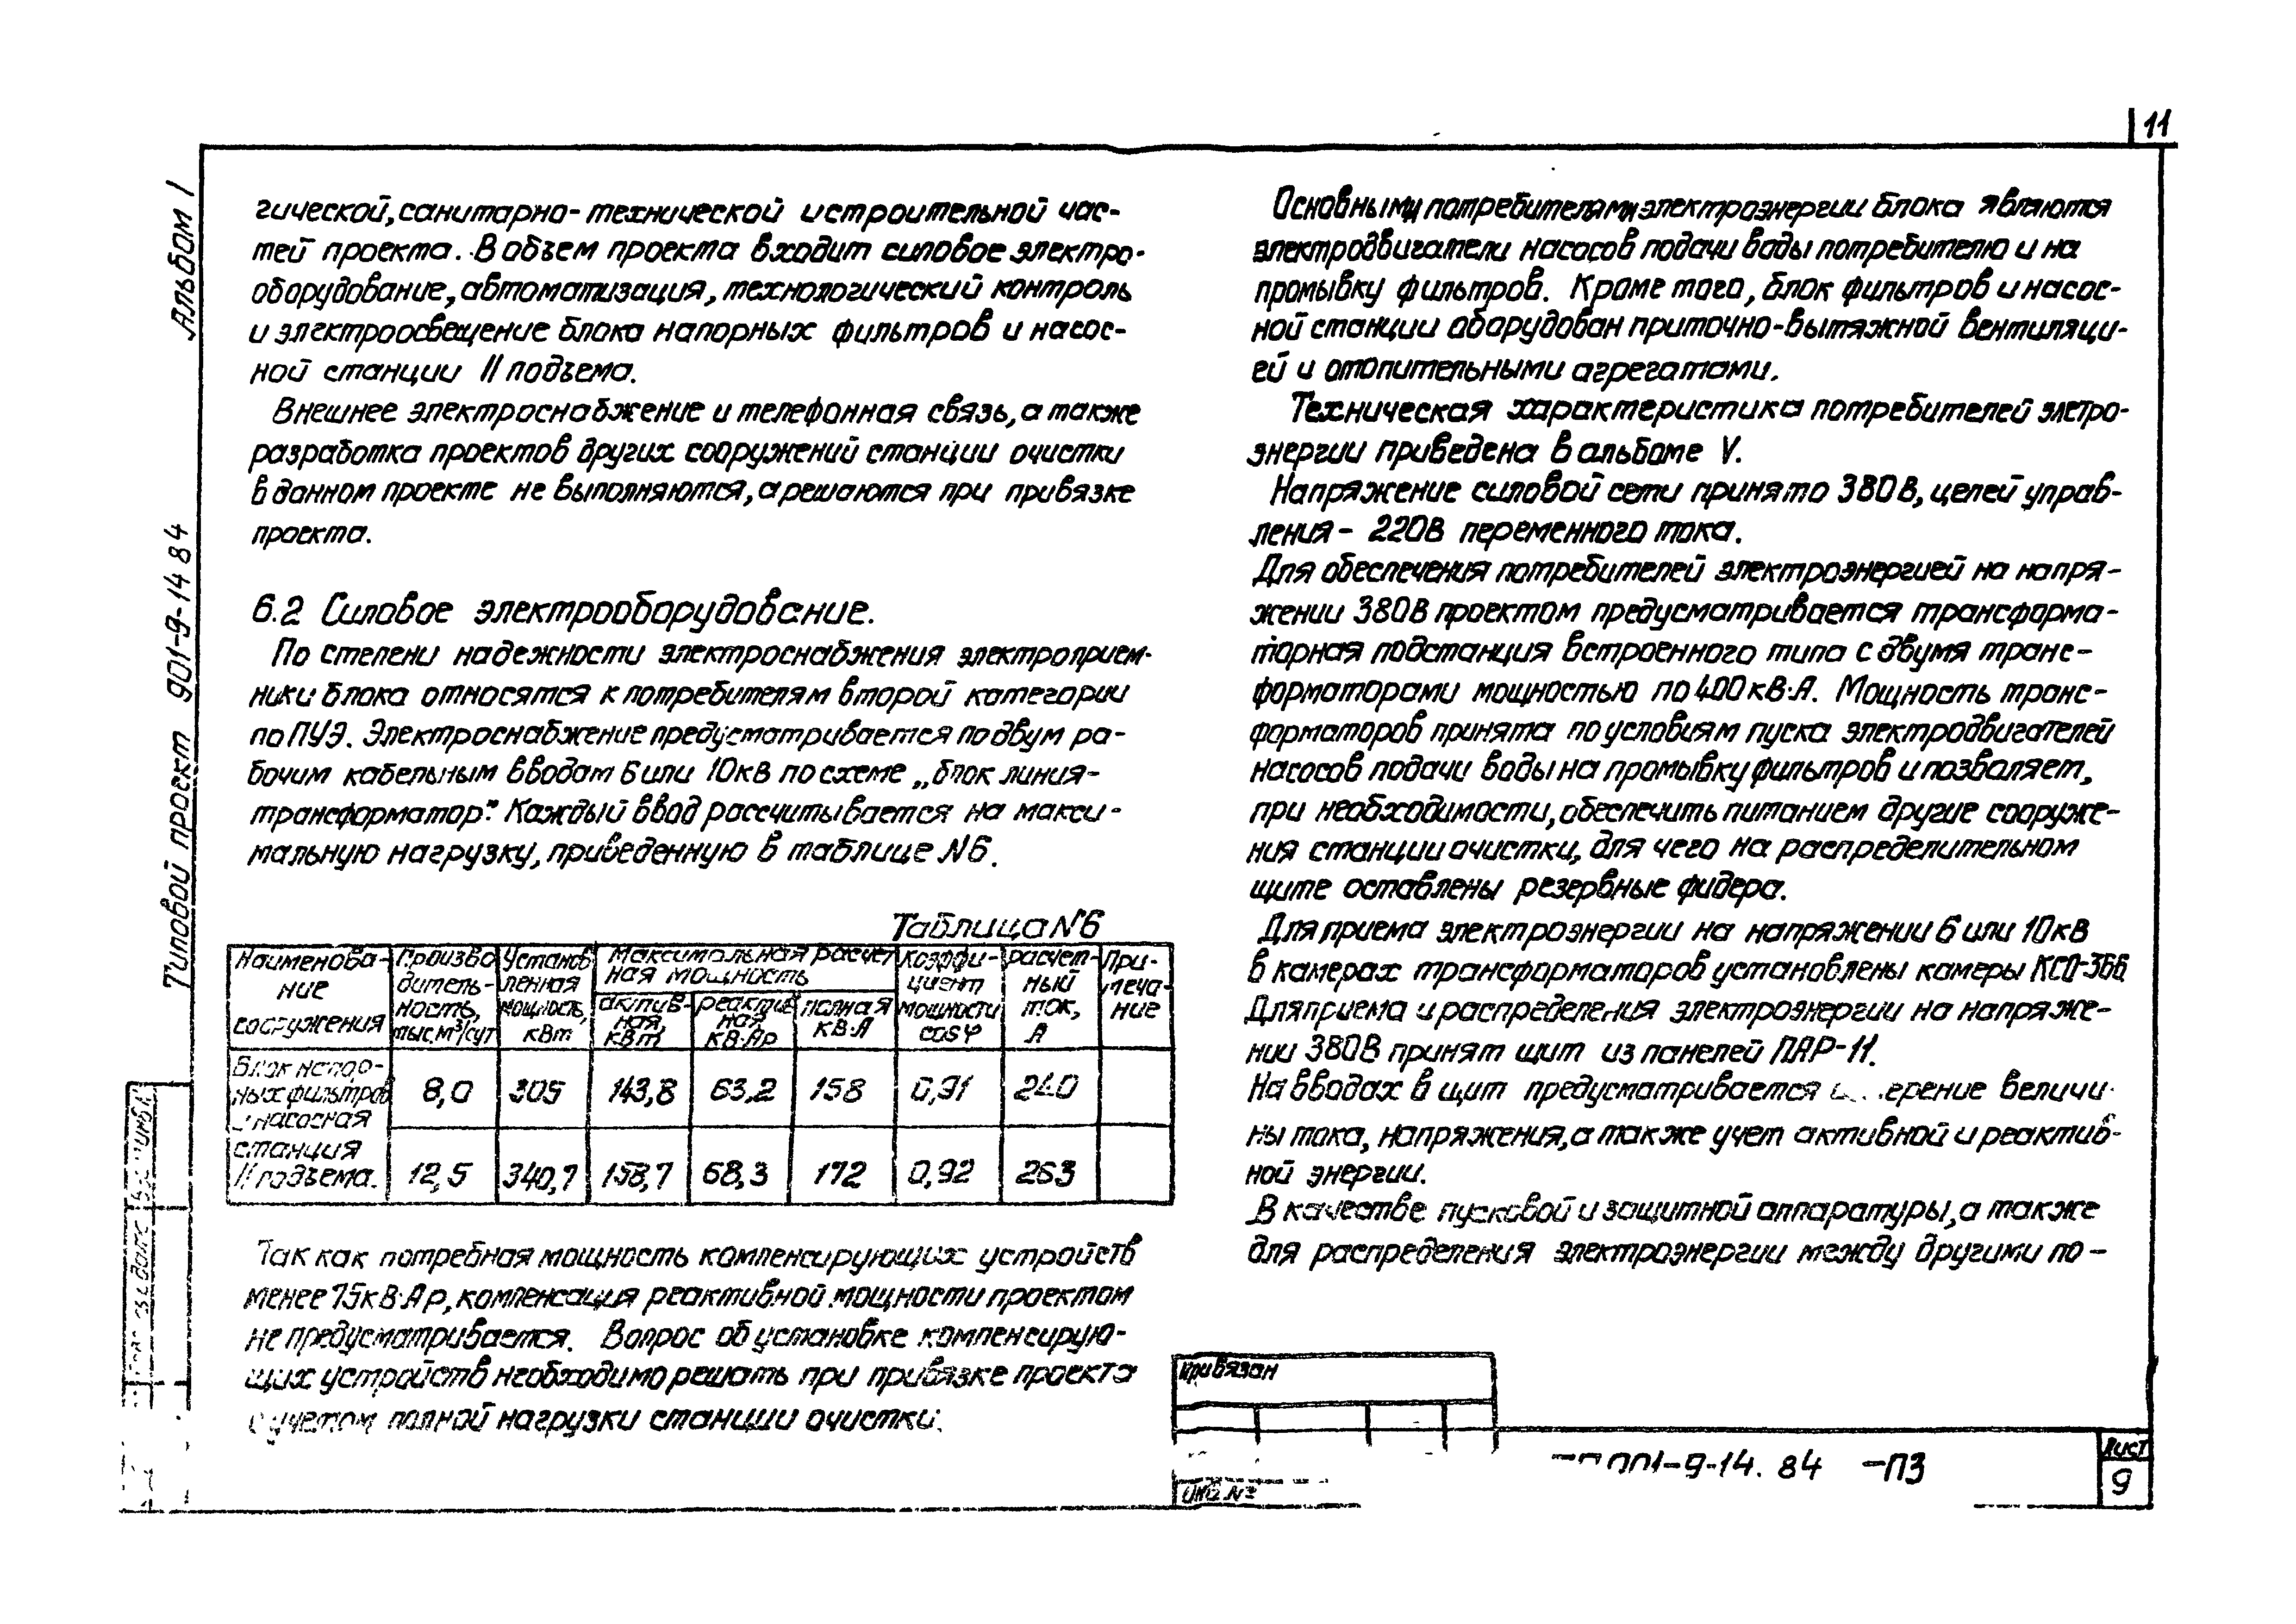 11
Альбом I
Типовой проект 901-9-14 84
гической, санитарно-технической и строительной час-
тей проекта. В объем проекта входит силовое электро-
оборудование, автоматизация, технологический контроль
и электроосвещение блока напорных фильтров и насос-
ной станции II подъема.
Внешнее электроснабжение и телефонная связь, а также
разработка проектов других сооружений станции очистки
в данном проекте не выполняются, а решаются при привязке
проекта.
6.2 Силовое электрооборудование.
По степени надежности электроснабжения электроприем-
ники блока относятся к потребителям второй категории
по ПУЭ. Электроснабжение предусматривается по двум ра-
бочим кабельным вводам 6 или 10кВ по схеме „блок линия-
трансформатор". Каждый ввод рассчитывается на макси-
мальную нагрузку, приведенную в таблице N6.
Таблица N6
Наименова-ние сооружения | Произво дитель-ность, тыс.м³/сут | Установ ленная мощность, кВт | Максимальная расчет ная мощность | Коэффи-циент мощности cosφ | расчет-ный ток, А | При-меча-ние
актив-ная, кВт | реактив ная кВ·Ар | полная кВ·А
Блок напо-рных фильтров и насосная станция II подъема.
8,0 | 305 | 143,8 | 63,2 | 158 | 0,91 | 240
12,5 | 340,7 | 158,7 | 68,3 | 172 | 0,92 | 263
Так как потребная мощность компенсирующих устройств
менее 75кВ·Ар, компенсация реактивной мощности проектом
не предусматривается. Вопрос об установке компенсирую-
щих устройств необходимо решать при привязке проекта
с учетом полной нагрузки станции очистки.
Основными потребителями электроэнергии блока являются
электродвигатели насосов подачи воды потребителю и на
промывку фильтров. Кроме того, блок фильтров и насос-
ной станции оборудован приточно-вытяжной вентиляци-
ей и отопительными агрегатами.
Техническая характеристика потребителей элетро-
энергии приведена в альбоме V.
Напряжение силовой сети принято 380В, цепей управ-
ления - 220В переменного тока.
Для обеспечения потребителей электроэнергией на напря-
жении 380В проектом предусматривается трансформа-
торная подстанция встроенного типа с двумя транс-
форматорами мощностью по 400кВ·А. Мощность транс-
форматоров принята по условиям пуска электродвигателей
насосов подачи воды на промывку фильтров и позволяет,
при необходимости, обеспечить питанием другие сооруже-
ния станции очистки, для чего на распределительном
щите оставлены резервные фидера.
Для приема электроэнергии на напряжении 6 или 10кВ
в камерах трансформаторов установлены камеры КСО-366.
Для приема и распределения электроэнергии на напряже-
нии 380В принят щит из панелей ПАР-11.
На вводах в щит предусматривается величи-
ны тока, напряжения, а также учет активной и реактив-
ной энергии.
В качестве пусковой и защитной аппаратуры, а также
для распределения электроэнергии между другими по-
Привязан
Инв. №
901-9-14. 84 -ПЗ
Лист
9